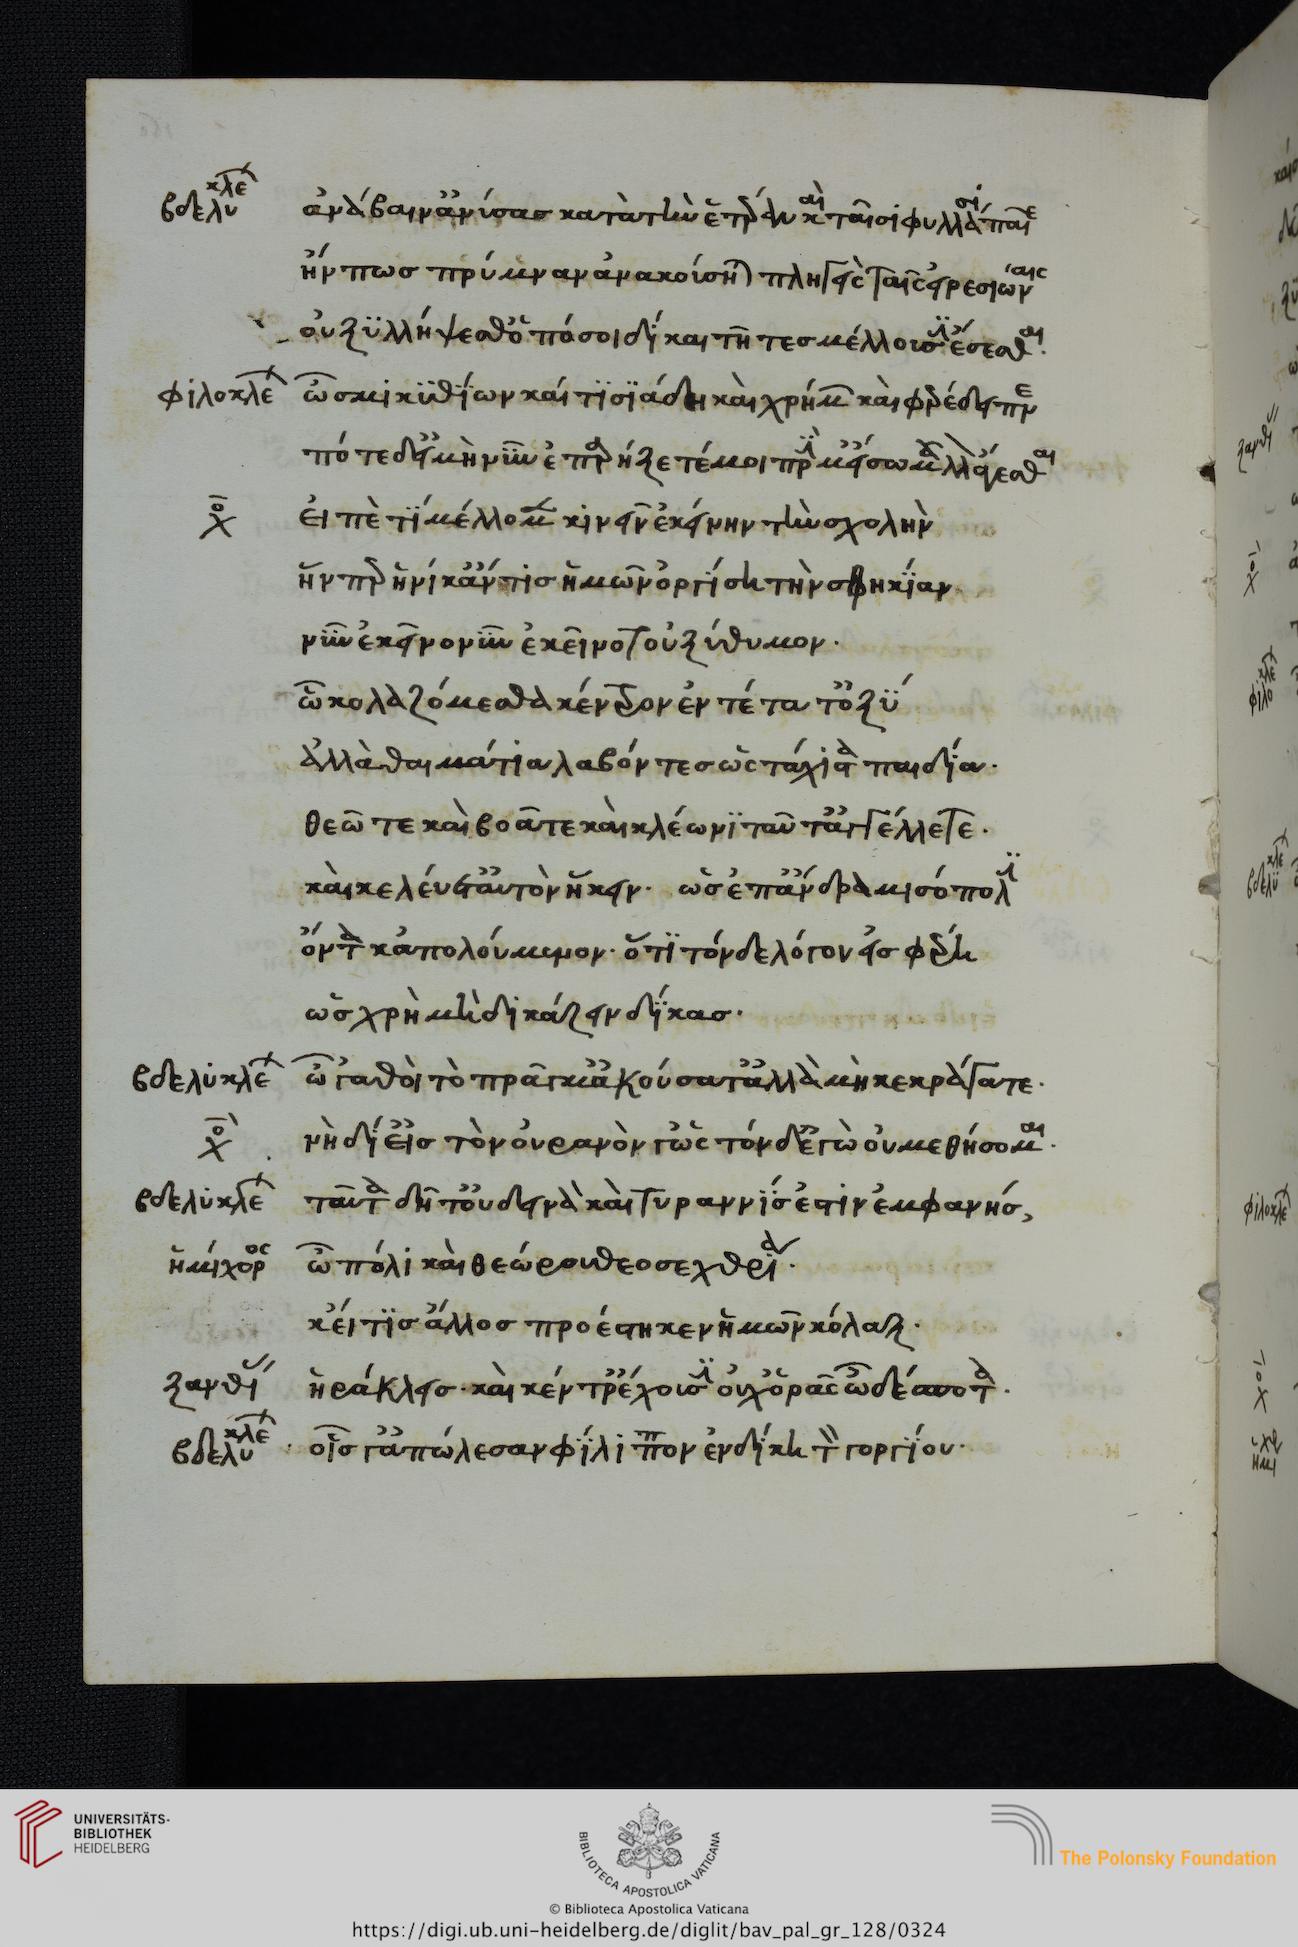 βδελυκλέ ἀνάβαιν ἀνύσας κατὰ τὴν ἑτέραν καὶ ταῖσι φυλλάσι παῖε
ἤν πως πρύμναν ἀνακρούσηται πληγεὶς ταῖς εἰρεσιώναις
οὐ ξυλλήψεσθ' ὁπόσοισι δίκαι τῆτες μέλλουσιν ἔσεσθαι.
φιλοκλέ ὦ σμικυθίων καὶ τισιάδη καὶ χρῆμον καὶ φερέδειπνε
πότε δ' εἰ μὴ νῦν ἐπαρήξετέ μοι πρίν μ' εἴσω μᾶλλον ἄγεσθαι
χο εἰπέ τί μέλλομεν κινεῖν ἐκείνην τὴν σχολὴν
ἥνπερ ἡνίκ' ἄν τις ἡμῶν ὀργίσῃ τὴν σφηκίαν.
νῦν ἐκεῖνο νῦν ἐκεῖνο τοὐξύθυμον.
ὧ κολαζόμεσθα κέντρον ἐντέτατ' ὀξύ
ἀλλὰ θαἰμάτια λαβόντες ὡς τάχιστα παιδία.
θεῶτε καὶ βοᾶτε καὶ κλέωνι ταῦτ' ἀγγέλλετε.
καὶ κελεύετ' αὐτὸν ἥκειν. ὡς ἐπ' ἄνδρα μισόπολιν
ὄντα κἀπολούμενον. ὅτι τόνδε λόγον εἰσφέρει
ὡς χρὴ μὴ δικάζειν δίκας.
βδελυκλέ ὦγαθοὶ τὸ πρᾶγμ' ἀκούσατ' ἀλλὰ μὴ κεκράγατε.
χο νὴ δί' εἰς τὸν οὐρανὸν γ' ὡς τόνδ' ἐγὼ οὐ μεθήσομαι.
βδελυκλέ ταῦτα δῆτ' οὐ δεινὰ καὶ τυραννίς ἐστιν ἐμφανής,
ἡμιχορος ὦ πόλι καὶ θεώρου θεοσεχθρία.
κεἴ τις ἄλλος προέστηκεν ἡμῶν κόλαξ.
ξανθί ἡράκλεις. καὶ κέντρ' ἔχουσιν οὐχ ὁρᾷς ὦ δέσποτα.
βδελυκλέ οἷς γ' ἀπώλεσαν φίλιππον ἐν δίκῃ τὸν γοργίου.
UNIVERSITÄTS-
BIBLIOTHEK
HEIDELBERG
BIBLIOTECA APOSTOLICA VATICANA
The Polonsky Foundation
© Biblioteca Apostolica Vaticana
https://digi.ub.uni-heidelberg.de/diglit/bav_pal_gr_128/0324